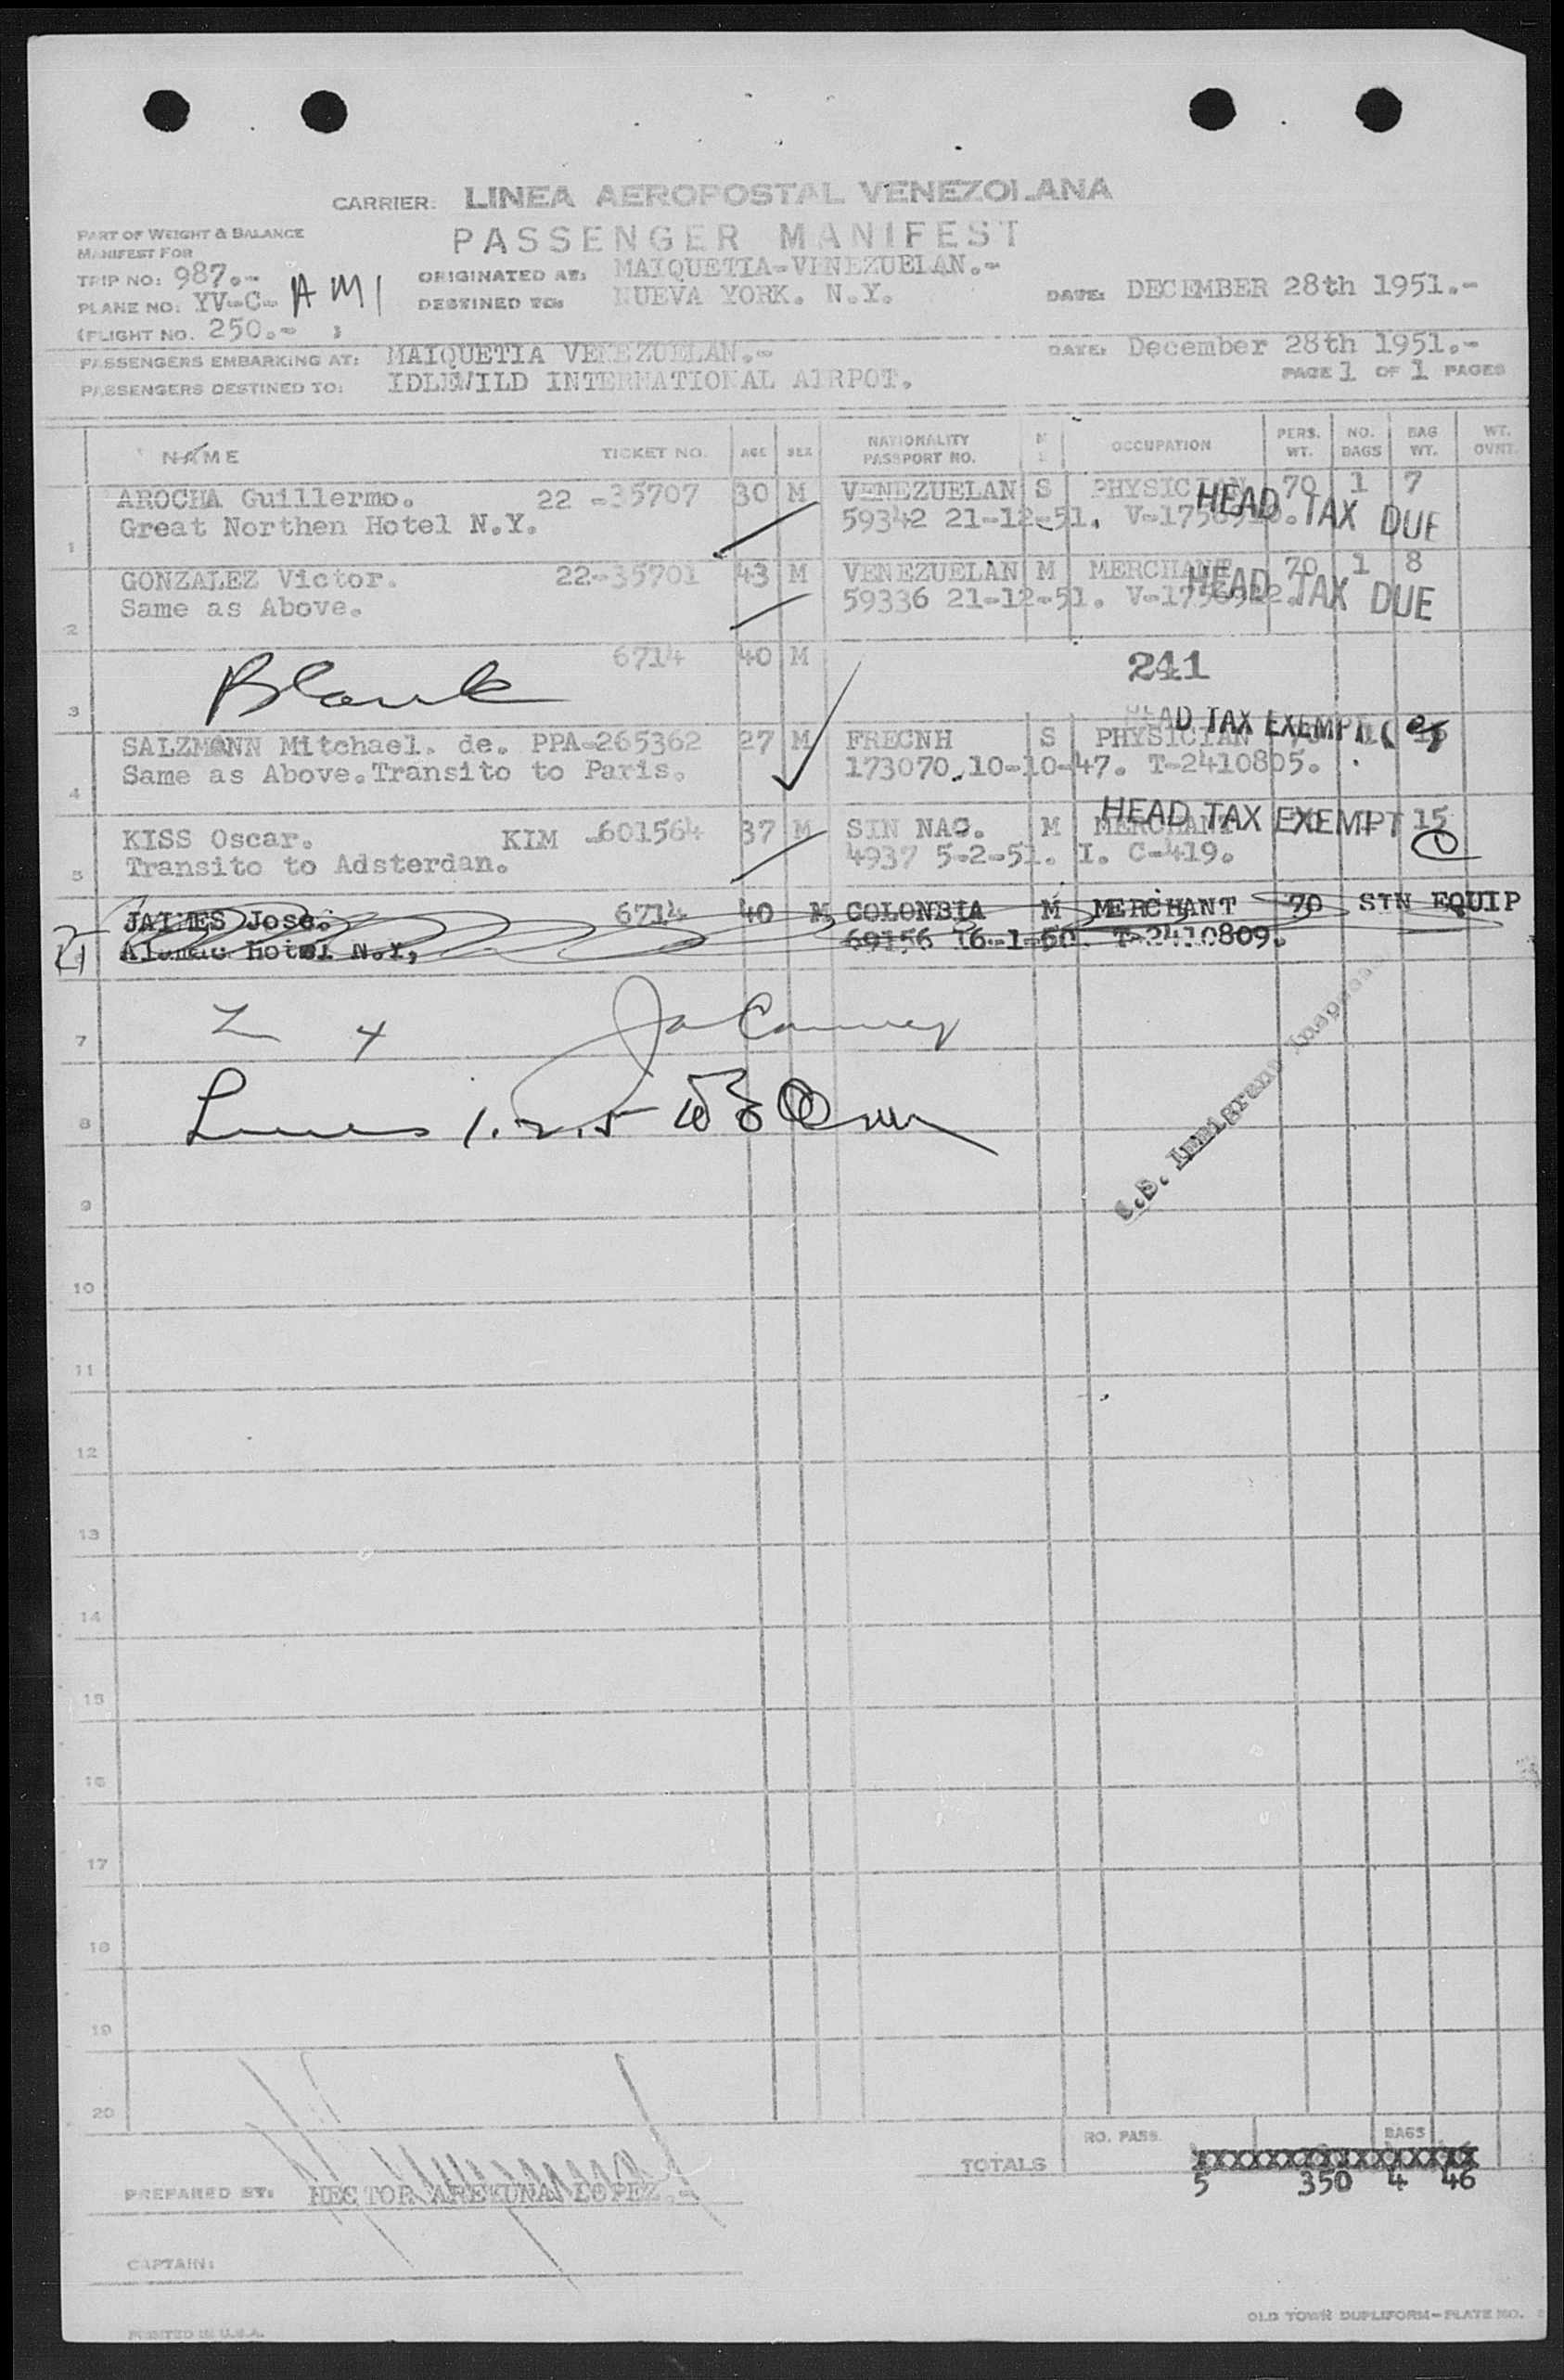 CARRIER: LINEA AEROPOSTAL VENEZOLANA
PART OF WEIGHT & BALANCE
MANIFEST FOR
PASSENGER MANIFEST
TRIP NO: 987.-
ORIGINATED AT: MAIQUETIA-VENEZUELAN.-
PLANE NO: YV-C- AMI
DESTINED TO: NUEVA YORK. N.Y.
DATE: DECEMBER 28th 1951.-
(FLIGHT NO. 250.- )
PASSENGERS EMBARKING AT: MAIQUETIA VENEZUELAN.-
DATE: December 28th 1951.-
PASSENGERS DESTINED TO: IDLEWILD INTERNATIONAL AIRPOT.
PAGE 1 OF 1 PAGES
NAME TICKET NO. AGE SEX NATIONALITY PASSPORT NO. M S OCCUPATION PERS. WT. NO. BAGS BAG WT. WT. OVNT.
1 AROCHA Guillermo. 22 -35707 30 M VENEZUELAN S PHYSICIAN 70 1 7
Great Northen Hotel N.Y. 59342 21-12-51. HEAD TAX DUE
2 GONZALEZ Victor. 22-35701 43 M VENEZUELAN M MERCHANT 70 1 8
Same as Above. 59336 21-12-51. HEAD TAX DUE
3 Blank 6714 40 M 241
HEAD TAX EXEMPT
4 SALZMANN Mitchael. de. PPA-265362 27 M FRECNH S PHYSICIAN 70 1
Same as Above. Transito to Paris. 173070.10-10-47. T-2410805.
HEAD TAX EXEMPT
5 KISS Oscar. KIM -601564 37 M SIN NAC. M MERCHANT 15
Transito to Adsterdan. 4937 5-2-51. I. C-419.
JAIMES Jose. 6714 40 M COLONBIA M MERCHANT 70 STN EQUIP
hotel N.Y, 69156 16-1-50. T-2410809.
7
8 Lines 1.2.5
U.S. Immigrant Inspector
9
10
11
12
13
14
15
16
17
18
19
20
RO. PASS. BAGS
TOTALS XXXXXXXXXXXXXXXXX
5 350 4 46
PREPARED BY: HECTOR AREKUNA LOPEZ.-
CAPTAIN:
OLD TOWN DUPLIFORM-PLATE NO.
PRINTED IN U.S.A.